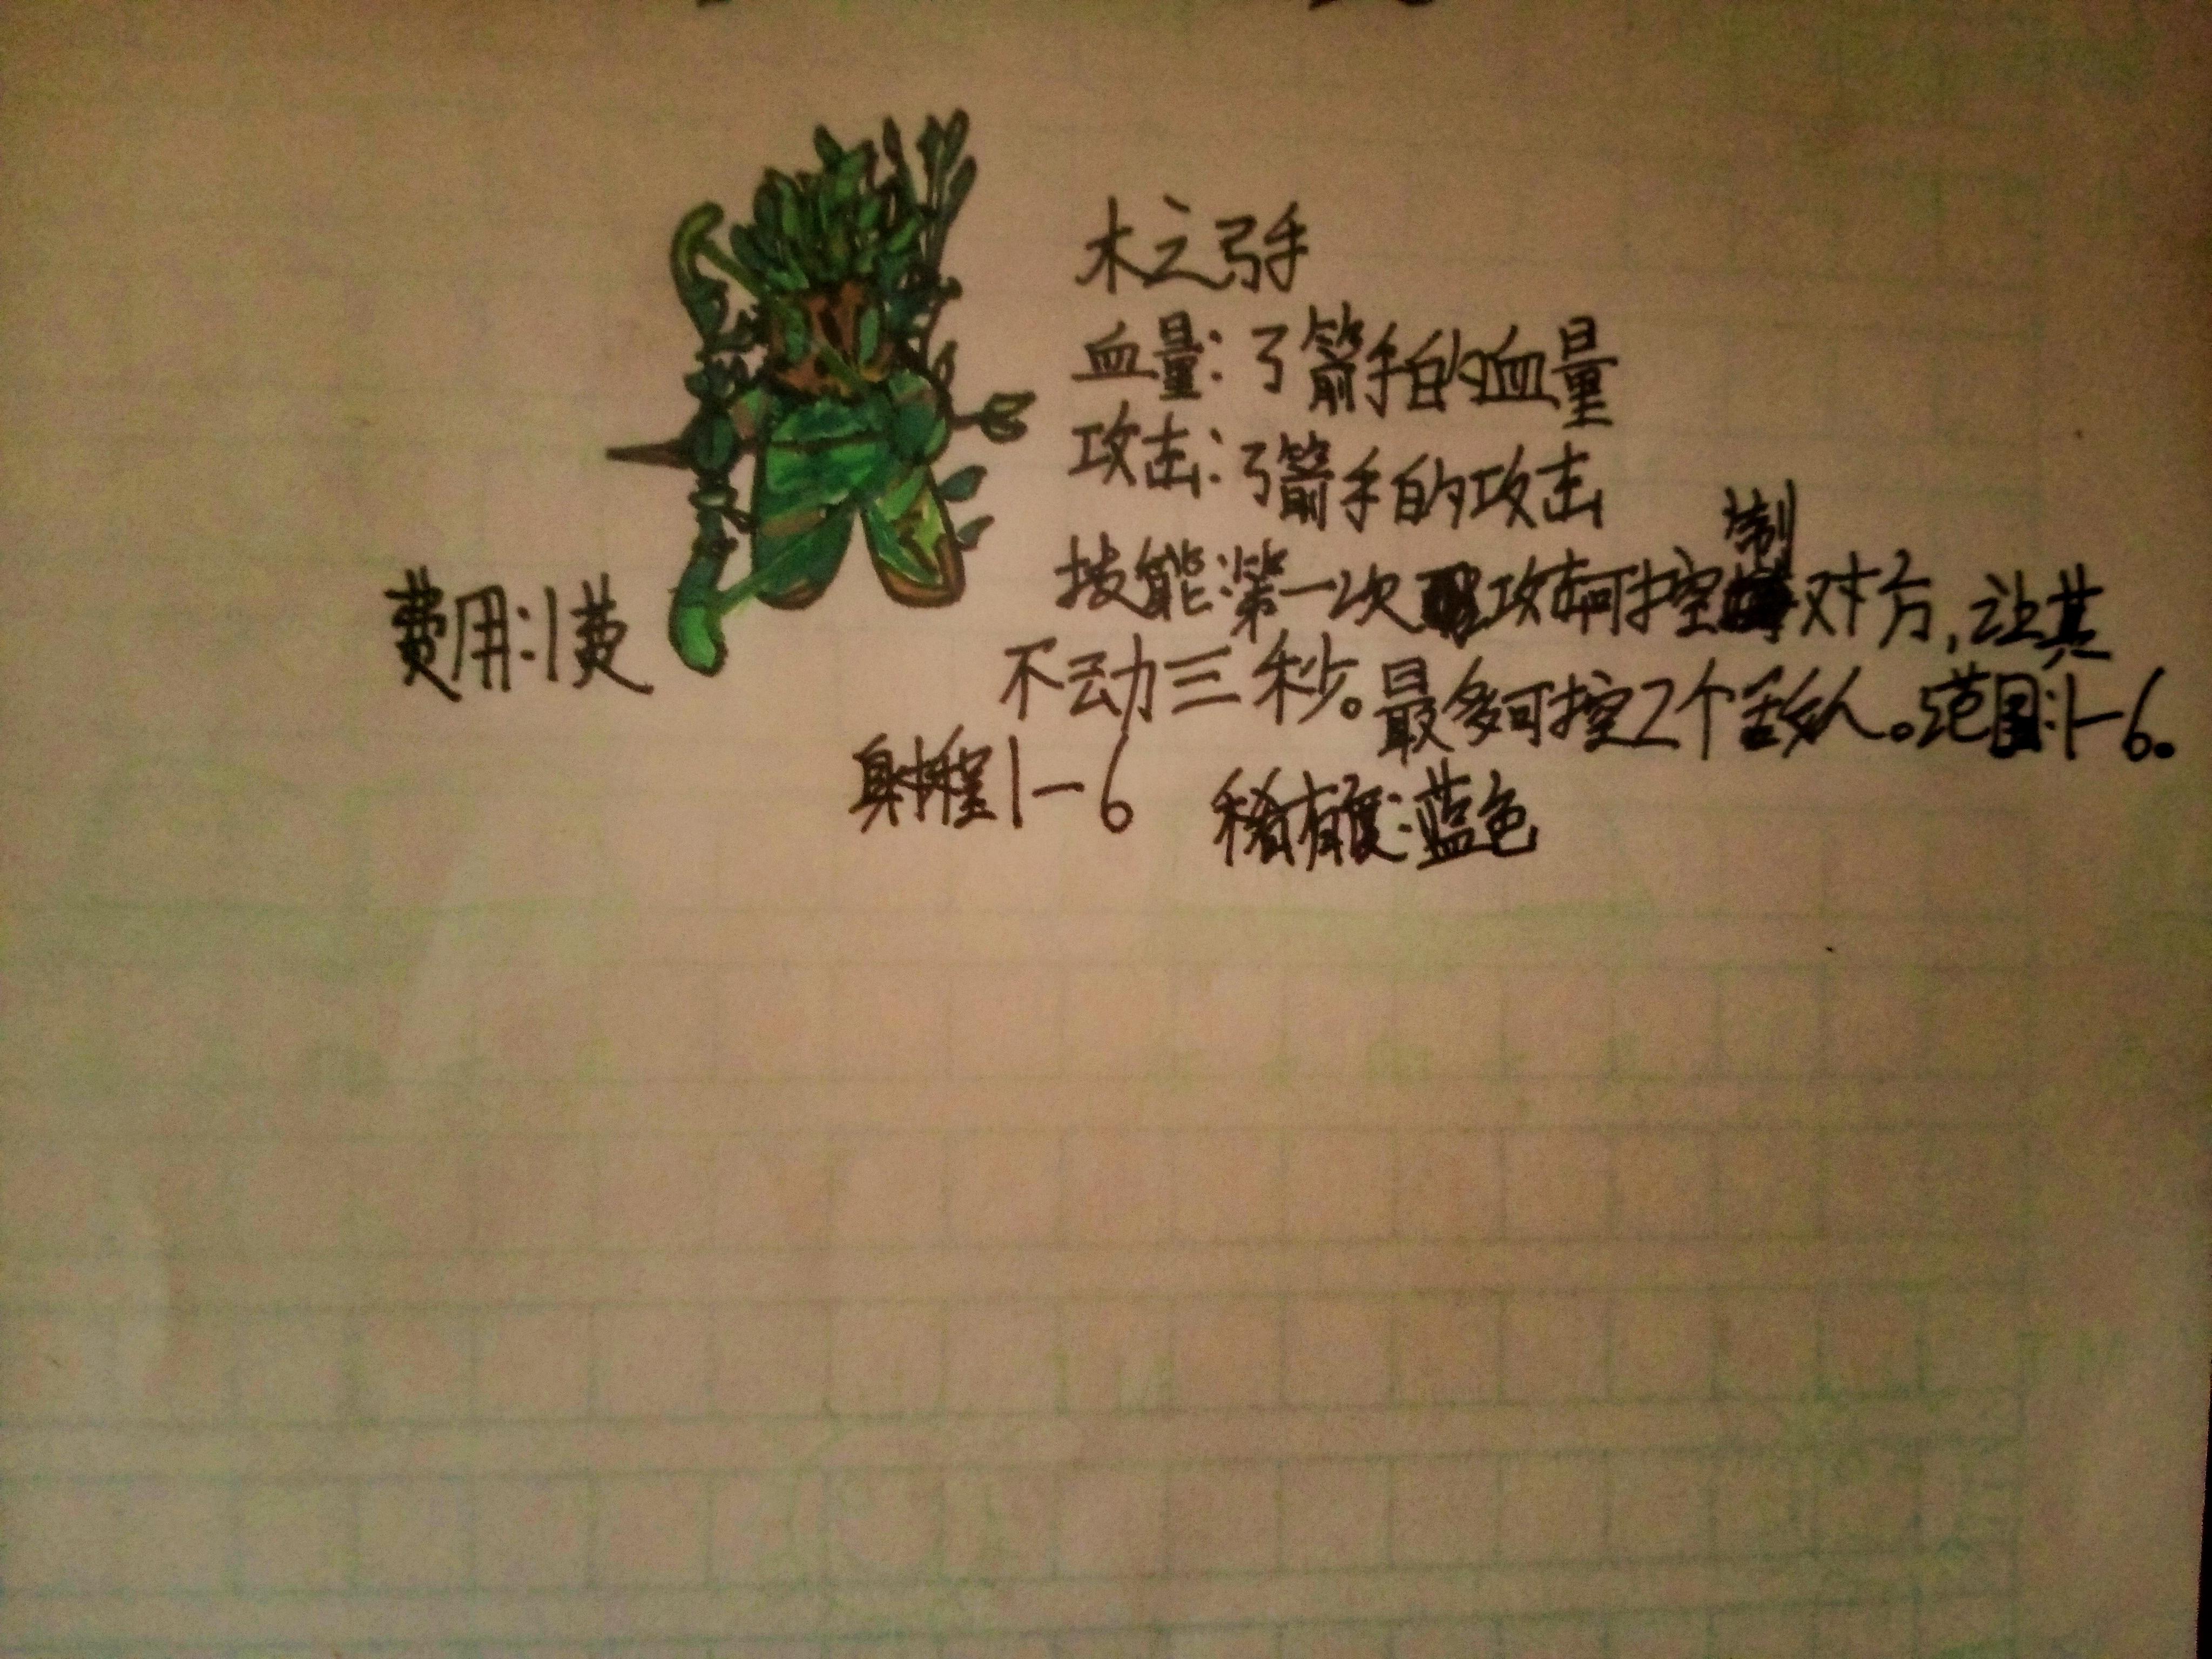 木之弓手
血量:弓箭手的血量
攻击:弓箭手的攻击
技能:第一次攻击可控制对方,让其
不动三秒。最多可控2个敌人。范围:1-6。
费用:1费
射程1-6
稀有度:蓝色